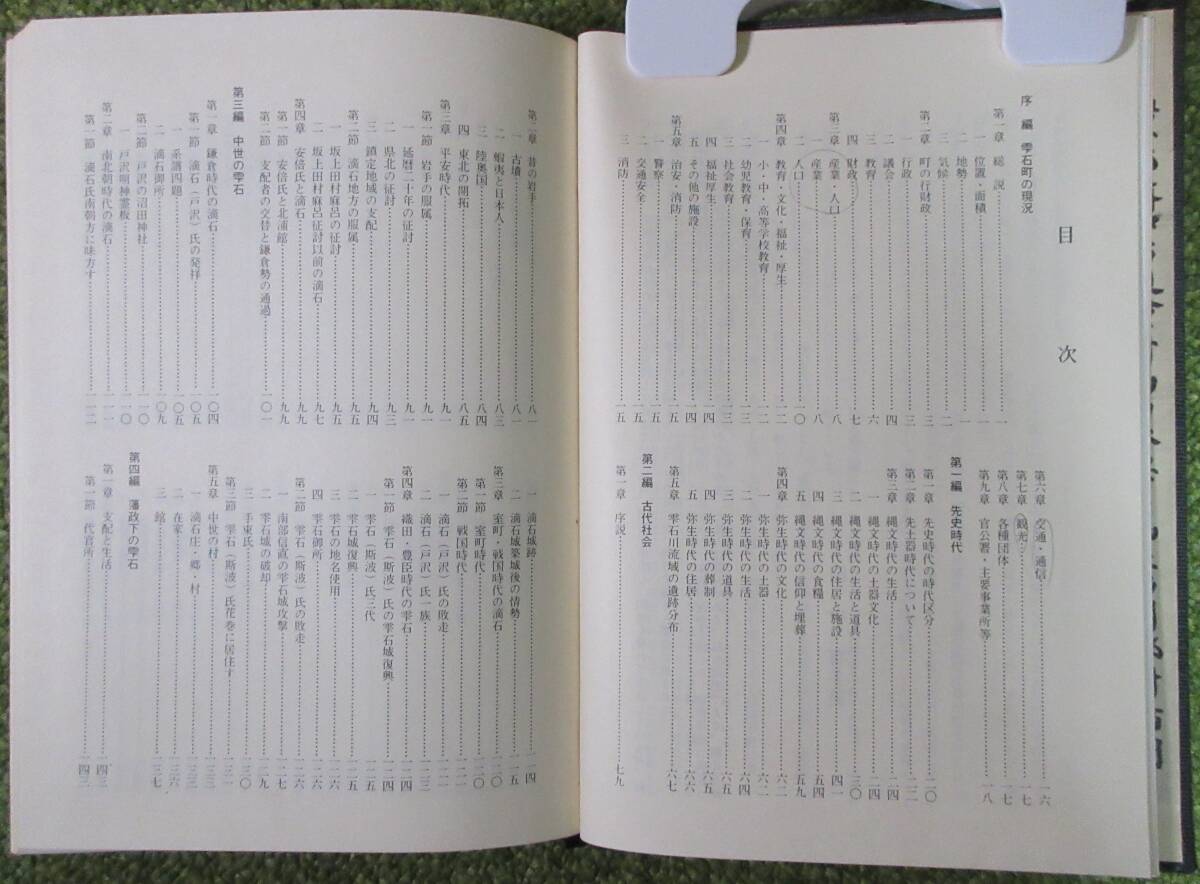 目次
序編 雫石町の現況
第一章 総説…一
一 位置・面積…一
二 地勢…一
三 気候…二
第二章 町の行財政…三
一 行政…三
二 議会…四
三 教育…六
四 財政…七
第三章 産業・人口…八
一 産業…八
二 人口…一〇
第四章 教育・文化・福祉・厚生…一二
一 小・中・高等学校教育…一二
二 幼児教育・保育…一三
三 社会教育…一三
四 福祉厚生…一四
五 その他の施設…一四
第五章 治安・消防…一五
一 警察…一五
二 交通安全…一五
三 消防…一五
第六章 交通・通信…一六
第七章 観光…一七
第八章 各種団体…一七
第九章 官公署・主要事業所等…一八
第一編 先史時代
第一章 先史時代の時代区分…二〇
第二章 先土器時代について…二二
第三章 縄文時代の生活…二四
一 縄文時代の土器文化…二四
二 縄文時代の生活と道具…三〇
三 縄文時代の住居と施設…四一
四 縄文時代の食糧…五四
五 縄文時代の信仰と埋葬…五九
第四章 弥生時代の文化…六二
一 弥生時代の土器…六二
二 弥生時代の生活…六四
三 弥生時代の道具…六五
四 弥生時代の葬制…六五
五 弥生時代の住居…六六
第五章 雫石川流域の遺跡分布…六七
第二編 古代社会
第一章 序説…七九
第二章 昔の岩手…八一
一 古墳…八一
二 蝦夷と日本人…八三
三 陸奥国…八四
四 東北の開拓…八五
第三章 平安時代…九一
第一節 岩手の服属…九一
一 延暦二十年の征討…九一
二 県北の征討…九三
三 鎮定地域の支配…九四
第二節 滴石地方の服属…九五
一 坂上田村麻呂の征討…九五
二 坂上田村麻呂の征討以前の滴石…九七
第四章 安倍氏と滴石…九九
第一節 安倍氏と北浦館…九九
第二節 支配者の交替と鎌倉勢の通過…一〇一
第三編 中世の雫石
第一章 鎌倉時代の滴石…一〇四
第一節 滴石(戸沢)氏の発祥…一〇五
一 系譜四題…一〇五
二 滴石御所…一〇九
第二節 戸沢の沼田神社…一一〇
一 戸沢明神霊板…一一〇
第二章 南北朝時代の滴石…一一一
第一節 滴石氏南朝方に味方す…一一二
一 滴石城跡…一一四
二 滴石城築城後の情勢…一一五
第三章 室町・戦国時代の滴石…一二〇
第一節 室町時代…一二〇
第二節 戦国時代…一二一
一 滴石(戸沢)氏の敗走…一二二
二 滴石(戸沢)氏一族…一二三
第四章 織田・豊臣時代の雫石…一二四
第一節 雫石(斯波)氏の雫石城復興…一二四
一 雫石(斯波)氏三代…一二五
二 雫石城復興…一二五
三 雫石の地名使用…一二六
四 雫石御所…一二六
第二節 雫石(斯波)氏の敗走…一二六
一 南部信直の雫石城攻撃…一二七
二 雫石城の破却…一二九
三 手東氏…一三〇
第三節 雫石(斯波)氏花巻に居住す…一三一
第五章 中世の村…一三三
一 滴石庄・郷・村…一三三
二 在家…一三六
三 館…一三七
第四編 藩政下の雫石
第一章 支配と生活…一四三
第一節 代官所…一四三